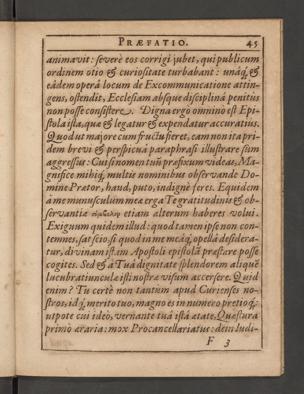 PRÆFATIO. 45
animavit: severè eos corrigi jubet, qui publicum
ordinem otio & curiositate turbabant: unáq; &
eâdem operâ locum de Excommunicatione attin-
gens, ostendit, Ecclesiam absque disciplinâ penitus
non posse consistere. Digna ergo omnino est Epi-
stola ista, quæ & legatur & expendatur accuratius.
Quod ut majore cum fructu fieret, eam non ita pri-
dem brevi & perspicuâ paraphrasi illustrare sum
aggressus: Cui si nomen tuũ præfixum videas, Ma-
gnifice mihiq; multis nominibus observande Do-
mine Prætor, haud, puto, indignè feres. Equidem
à me munusculum mea erga Te gratitudinis & ob-
servantiæ etiam alterum haberes volui.
Exiguum quidem illud: quod tamen ipse non con-
temnes, sat scio, si quod in me meáq; opellâ desidera-
tur, divinam istam Apostoli epistolã præstare posse
cogites. Sed & à Tuâ dignitate splendorem aliquẽ
lucubratiunculæ isti nostræ visum accersere. Quid
enim? Tu certè non tantum apud Curienses no-
stros, idq; merito tuo, magno es in numero pretioq;
utpote cui ideò, vernante tuâ istâ ætate, Quæstura
primò æraria: mox Procancellariatus: dein Iudi-
F 3